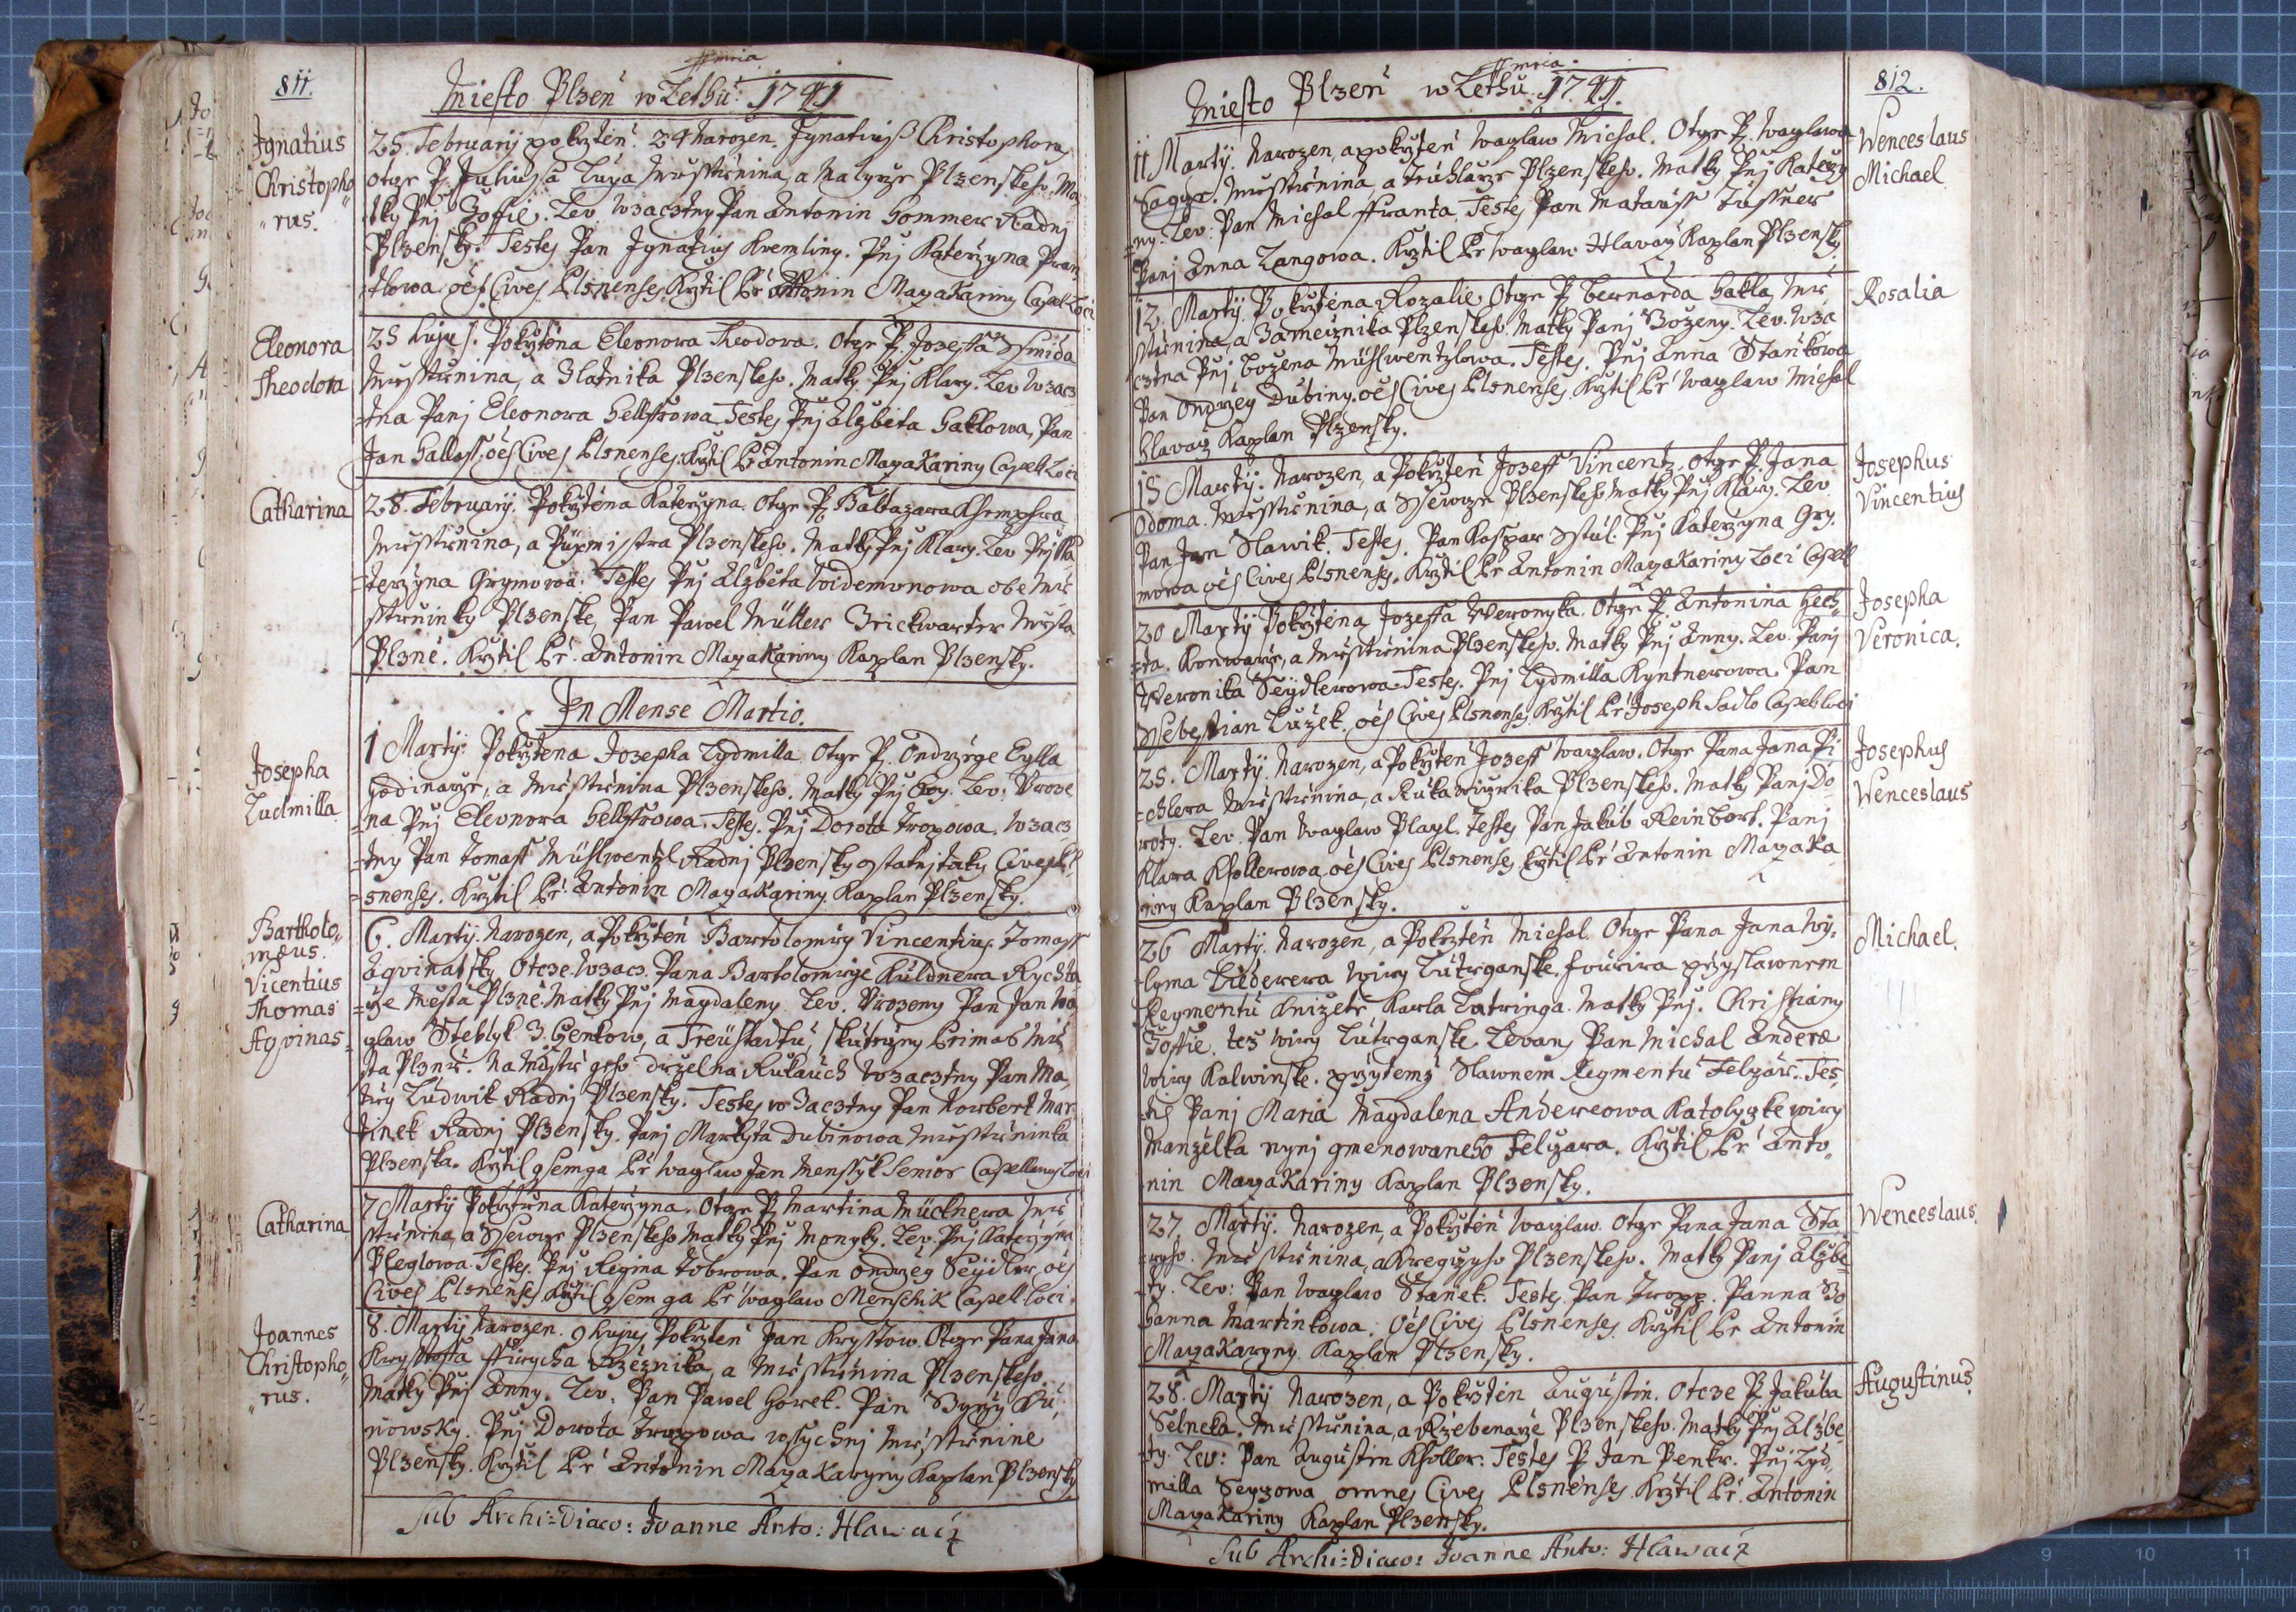 811.
Miesto Plzeň w Lethu: 1741
Ignatius
Christopho
rus.
25. Februarij pokrztěn. 24 Narozen. Ignatiuß Christophorus
Otcze P. Juliusa Luya Miesstienina, a Malyrze Plzenskeho. Ma
tky Pnj Zofie. Lev. Wzacztny Pan Antonin Hommer Radnj
Plzensky. Testes Pan Ignatius Kremling. Pnj Katerzyna Pran
tlowa oēs Cives Plsnenses Krztil Pr Antonin Mayakariny Capel. Loci
Eleonora
Theodora
25 hujus. Pokrztěna Eleonora Theodora. Otcze P. Jozeffa Ssmida
Miesstienina, a Zlatnika Plzenskeho. Matky Pnj Klary. Lev Wzacz
tna Panj Eleonora Hellffrowa. Testes Pnj Alzběta Haklowa, Pan
Jan Hallass, oēs Cives Plsnenses: Krztil Pr Antonin Mayakariny Capell. Loci
Catharina
28. Februarij. Pokrztěna Katerzyna. Otcze P. Baltazara
Miesstienina, a Puxmistra Plzenskeho. Matky Pnj Klary. Lev Pnj Ka
terzyna Grymowa. Testes Pnj Alzběta Widemonowa obe Mie
sstieninky Plzenske, Pan Pawel Müller Miesta
Plzně. Krztil Pr. Antonin Mayakariny Kaplan Plzensky.
In Mense Martio.
Josepha
Ludmilla
1 Martij. Pokrztena Josepha Lydmilla Otcze P. Ondrzege Eylla
hodinarze, a Miesstienina Plzenskeho. Matky Pnj Ewy. Lev: Uroze
na Pnj Eleonora Hellffrowa. Testes. Pnj Dorota Tropowa. Wzacz
tny Pan Tomass Mühlwentzl Radnj Plzensky ostatnj taky Cives Pl
snenses. Krztil Pr. Antonin Mayakariny Kaplan Plzensky.
Bartholo
mæus.
Vicentius
Thomas
Aqvinas
6. Martij. Narozen, a Pokrztěn Bartolomiey Vincentius Tomass
Aqvinatsky Otcze Wzacz. Pana Bartolomiege Küldnera Rychta
rze Mesta Plzně. Matky Pnj Magdaleny Lev. Urozeny Pan Jan Wa
glaw Steblyk Z Genkow, a Treustadtu, skutečny Primas Mie
sta Plzně. Na Mistie geho držel na Rukauch Wzacztny Pan Ma
tiey Ludwik Radnj Plzensky. Testes Wzacztny Pan Norbert Mar
tinek Radnj Plzensky. Panj Markyta Dubinowa Miesstieninka
Plzenska. Krztil gsem ga Pr Waglaw Jan Menssyk Senior Capellanus Loci
Catharina
7 Martij Pokrztiena Katerzyna. Otcze P. Martina Mücknera Mie
sstienina, a Ssewcze Plzenskeho Matky Pnj Monyky. Lev. Pnj Katerzyna
Pleglowa Testes. Pnj Regina Tobrowa. Pan Ondrzeg Seydler, oēs
Cives Plsnenses Krztil gsem ga Pr Waglaw Menschik Capell Loci.
Joannes
Christopho
rus.
8. Martij Narozen. 9 hujus Pokrztěn Jan Krysstow. Otcze Pana Jana
Krysstoffa Rzeznika, a Miesstienina Plzenskeho.
Matky Pnj Anny. Lev: Pan Pawel Horek. Pan
nowsky. Pnj Dorota Tropowa wssychnj Miesstienine
Plzensky. Krztil Pr Antonin Mayakaryny Kaplan Plzensky
Sub Archi=Diaco: Joanne Anto: Hlawacz
812.
Miesto Plzeň w Lethu. 1741.
Wenceslaus
Michael
11 Martij. Narozen, a pokrztěn Waglaw Michal. Otcze P. Waglawa
Miesstienina, a Truhlarze Plzenskeho. Matky Pnj Katerzy
ny. Lev: Pan Michal Ffranta. Testes Pan Matauss Tussner
Panj Anna Langowa. Krztil Pr Waglaw Hlavacz Kaplan Plzensky
Rosalia
12. Martij Pokrztěna Rozalie Otcze P. Bernarda Hakla Mie
sstienina, a Zamecznika Plzenskeho. Matky Panj Bozeny. Lev. Wza
cztna Pnj Bozena Mühlwentzlowa. Testes. Pnj Anna Stankowa
Pan Ondrzeg Dubiny. oēs Cives Plsnenses. Krztil Pr Waglaw Michal
Hlavacz Kaplan Plzensky.
Josephus
Vincentius
15 Martij. Narozen, a Pokrztěn Jozeff Vincentz, Otcze P. Jana
Odoma. Miesstienina, a Ssewcze Plzenskeho Matky Pnj Klary. Lev.
Pan Jan Slawik. Testes. Pan Kaspar Sstul. Pnj Katerzyna Gry
mowa oēs Cives Plsnenses. Krztil Pr Antonin Mayakariny Loci Capell
Josepha
Veronica.
20 Martij Pokrztěna Jozeffa Weronyka. Otcze P. Antonina Hech
ta. Konwarze, a Miesstienina Plzenskeho. Matky Pnj Anny. Lev. Panj
Weronika Seydlerowa. Testes. Pnj Lydmilla Kyntnerowa. Pan
Ssebestian Luzek. oēs Cives Plsnenses. Krztil Pr Joseph Sadlo Capel. Loci
Josephus
Wenceslaus
25. Martij. Narozen, a Pokrztěn Jozeff Waglaw. Otcze Pana Jana Pi
chlera Miesstienina, a Rukawicznika Plzenskeho. Matky Panj Do
roty. Lev. Pan Waglaw Playl. Testes Pan Jakub Reinbort. Panj
Klara Khollerowa oēs Cives Plsnenses. Krztil Pr Antonin Mayaka
riny Kaplan Plzensky.
Michael.
26 Martij. Narozen, a Pokrztěn Michal. Otcze Pana Jana Wy
lyma Liederera Wiry Lutrganske, fourira przyslawnem
Regmentu Knizete Karla Latringa. Matky Pnj. Christiany
Zoffie. tez wiry Lutrganske Levans Pan Michal Anderæ
Wiry Kalwinske. przytemz Slawnem Regmentu Felczar. Tes
tes Panj Maria Magdalena Andereowa Katolyczke wiry
Manzelka nynj gmenowaneho Felczara. Krztil Pr Anto
nin Mayakariny Kaplan Plzensky.
Wenceslaus
27. Martij. Narozen, a Pokrztěn Waglaw. Otcze Pana Jana Sta
ryho. Miesstienina, a Kregczyho Plzenskeho. Matky Panj Alzbe
ty. Lev: Pan Waglaw Stanek. Testes. Pan Tropp. Panna Jo
hanna Martinkowa. oēs Cives Plsnenses. Krztil Pr Antonin
Mayakaryny. Kaplan Plzensky.
Augustinus
28. Martij Narozen, a Pokrztěn Augustin. Otcze P. Jakuba
Selneka. Miesstienina, a Rzebenarze Plzenskeho. Matky Pnj Alzbe
ty. Lev: Pan Augustin Kholler. Testes P. Jan Penkr. Pnj Lyd
milla Seyzowa omnes Cives Plsnenses. Krztil Pr. Antonin
Mayakariny Kaplan Plzensky.
Sub Archi=Diaco: Joanne Anto: Hlawacz
9 10 11